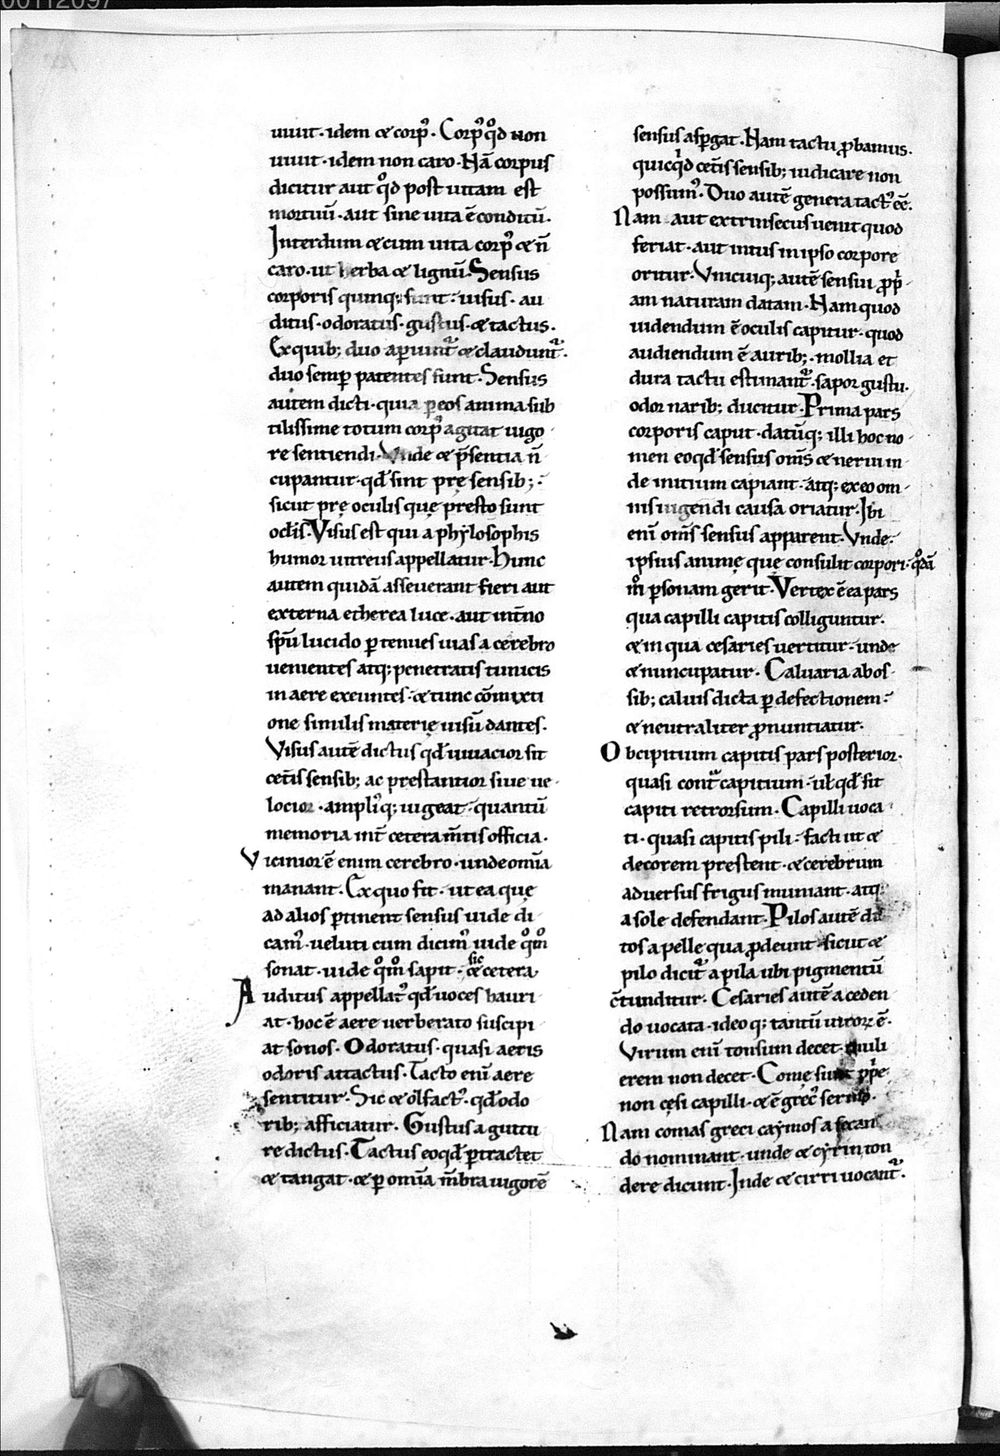 00112097
uiuit· idem & corpꝰ· Corpꝰ qͦd non
uiuit· idem non caro· Nā corpus
dicitur aut qͦd post uitam est
mortuū· aut sine uita ē conditū·
Interdum & cum uita corpꝰ & ñ
caro· ut herba & lignū· Sensus
corporis quinq; sunt· uisus· au
ditus· odoratus· gustus· & tactus·
Ex quib; duo aꝑiunt᷑ & claudunt᷑·
duo semꝑ patentes sunt· Sensus
autem dicti· quia ꝑ eos anima sub
tilissime totum corpꝰ agitat uigo
re sentiendi· Vnde & p̄sentia ñ
cupantur· qđ sint prę sensib;·
sicut prę oculis quę presto sunt
oclīs· Visus est qui a phylosophis
humor uitreus appellatur· Hunc
autem quidā asseuerant fieri aut
externa etherea luce· aut int̄no
sp̄u lucido ꝑ tenues uias a cerebro
uenientes atq; penetratis tunicis
in aere exeuntes· & tunc cōmixti
one similis materię uisū dantes·
Visus autē dictus qđ uiuacior sit
cet̄is sensib; ac prestantior siue ue
locior· ampliꝰq; uigeat· quantū
memoria int̄ cetera m̄tis officia·
Vicinior ē enim cerebro· unde om̄ia
manant· Ex quo fit· ut ea quę
ad alios ꝑtinent sensus uide di
camꝰ· ueluti cum dicimꝰ uide qͦmͦ
sonat· uide qͦmͦ sapit· sic & cetera
Auditus appellatꝰ qđ uoces hauri
at· hoc ē aere uerberato suscipi
at sonos· Odoratus· quasi aeris
odoris attactus· Tacto enī aere
sentitur· Sic & olfactꝰ· qđ odo
rib; afficiatur· Gustus a guttu
re dictus· Tactus eo qđ ꝑtractet
& tangat· & ꝑ om̄ia m̄bra uigorē
sensus aspͥgat· Nam tactu ꝓbamus·
quicqͥd cet̄is sensib; iudicare non
possumꝰ· Duo autē genera tactꝰ ēē·
Nam aut extrinsecus uenit quod
feriat· aut intus in ipso corpore
oritur· Vnicuiq; autē sensui ꝓpͥ
am naturam datam· Nam quod
uidendum ē oculis capitur· quod
audiendum ē aurib;· mollia et
dura tactu estimant᷑· sapor gustu·
odor narib; ducitur· Prima pars
corporis caput· datūq; illi hoc no
men eo qđ sensus om̄s & nerui in
de initium capiant· atq; ex eo om
nis uigendi causa oriatur· Ibi
enī om̄s sensus apparent· Vnde
ipsius animę quę consulit corpori· qͦdā
mͦ ꝑsonam gerit· Vertex ē ea pars
qua capilli capitis colliguntur·
& in qua cesaries uertitur· unde
& nuncupatur· Caluaria ab os
sib; caluis dicta ꝑ defectionem·
& neutraliter ꝓnuntiatur·
Obcipitium capitis pars posterior·
quasi contᷓ capitium· uł qđ sit
capiti retrorsum· Capilli uoca
ti· quasi capitis pili· facti ut &
decorem prestent· & cerebrum
aduersus frigus muniant· atq;
a sole defendant· Pilos autē dic
tos a pelle qua ꝓdeunt· sicut &
pilo dicit᷑ a pila ubi pigmentū
c̄tunditur· Cesaries autē a ceden
do uocata· ideoq; tantū uiroꝝ ē·
Virum enī tonsum decet· muli
erem non decet· Comę sunt ꝓpͥe
non cęsi capilli· & ē grecꝰ sermo·
Nam comas greci caymos a secan
do nominant· unde & cyrin ton
dere dicunt· Inde & cirri uocant᷑·